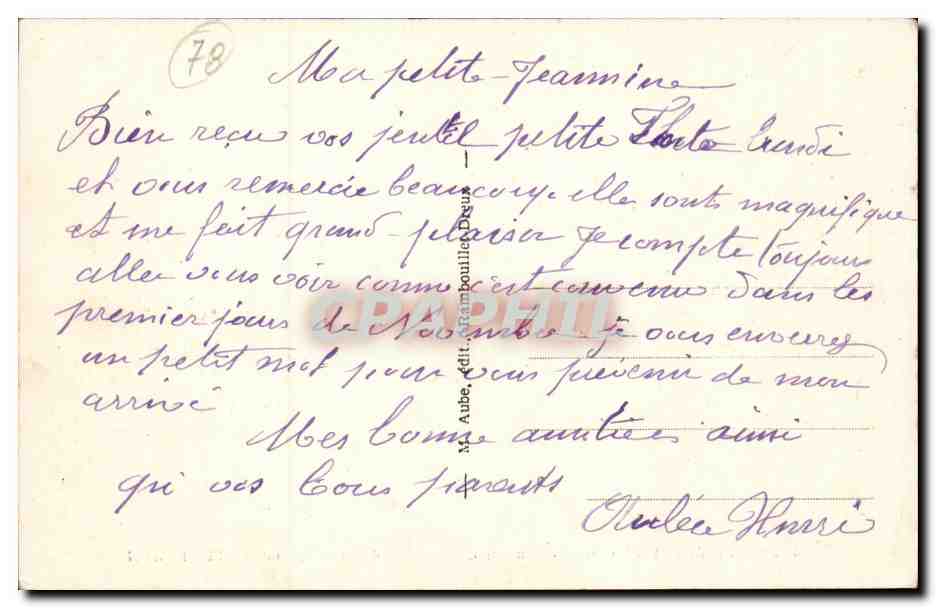 78
Ma petite Jeannine
Bien reçu vos jentil petite Photo lundi
et vous remercie beaucoup. elle sonts magnifique
et me fait grand plaisir Je compte toujours
aller vous voir comme c'est convenu dans les
premier jours de Novembre je vous envoirez
un petit mot pour vous prévenir de mon
arrivé
Mes bonne amitiés ainsi
qui vos bons parents
Henri
M. Aube, édit., Rambouillet-Dreux
CPAPHIL